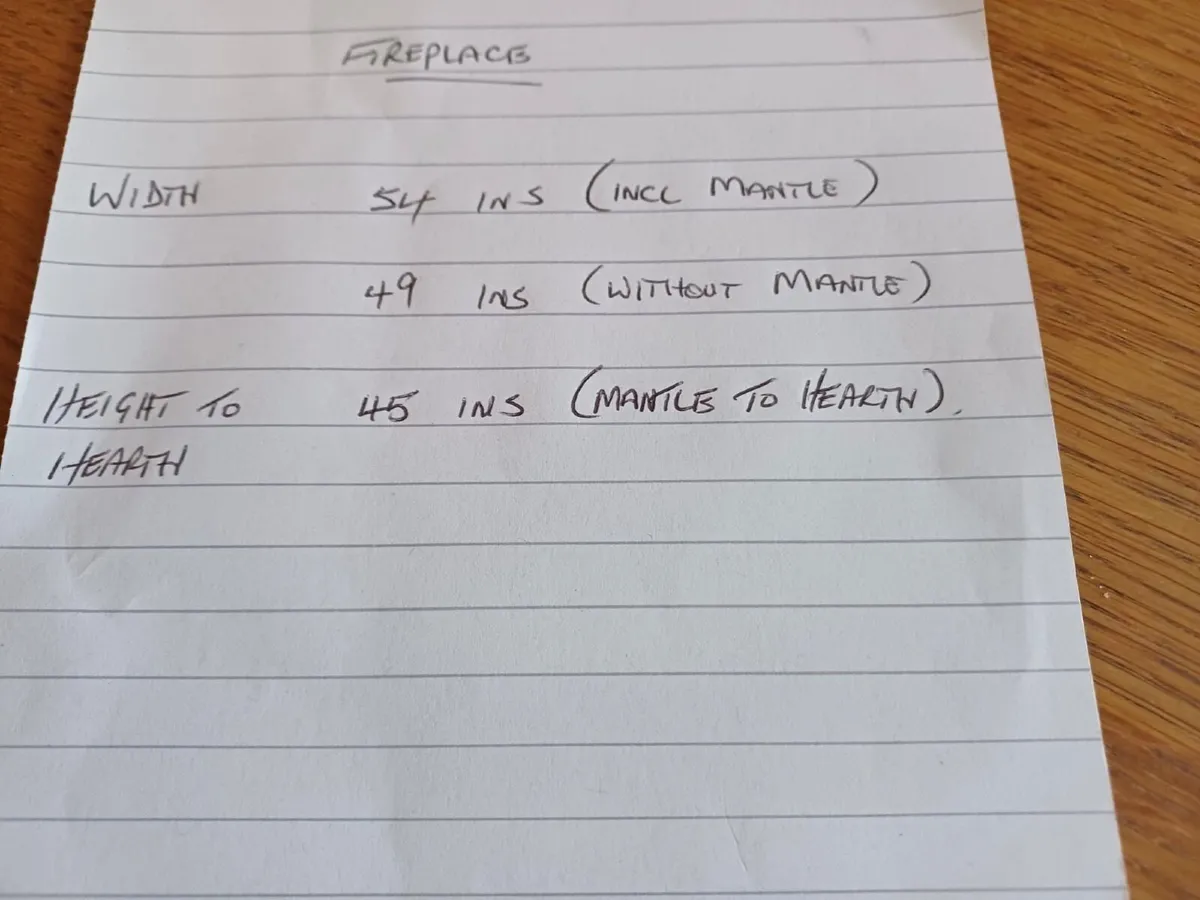 FIREPLACE
WIDTH 54 INS (INCL MANTLE)
49 INS (WITHOUT MANTLE)
HEIGHT TO 45 INS (MANTLE TO HEARTH).
HEARTH